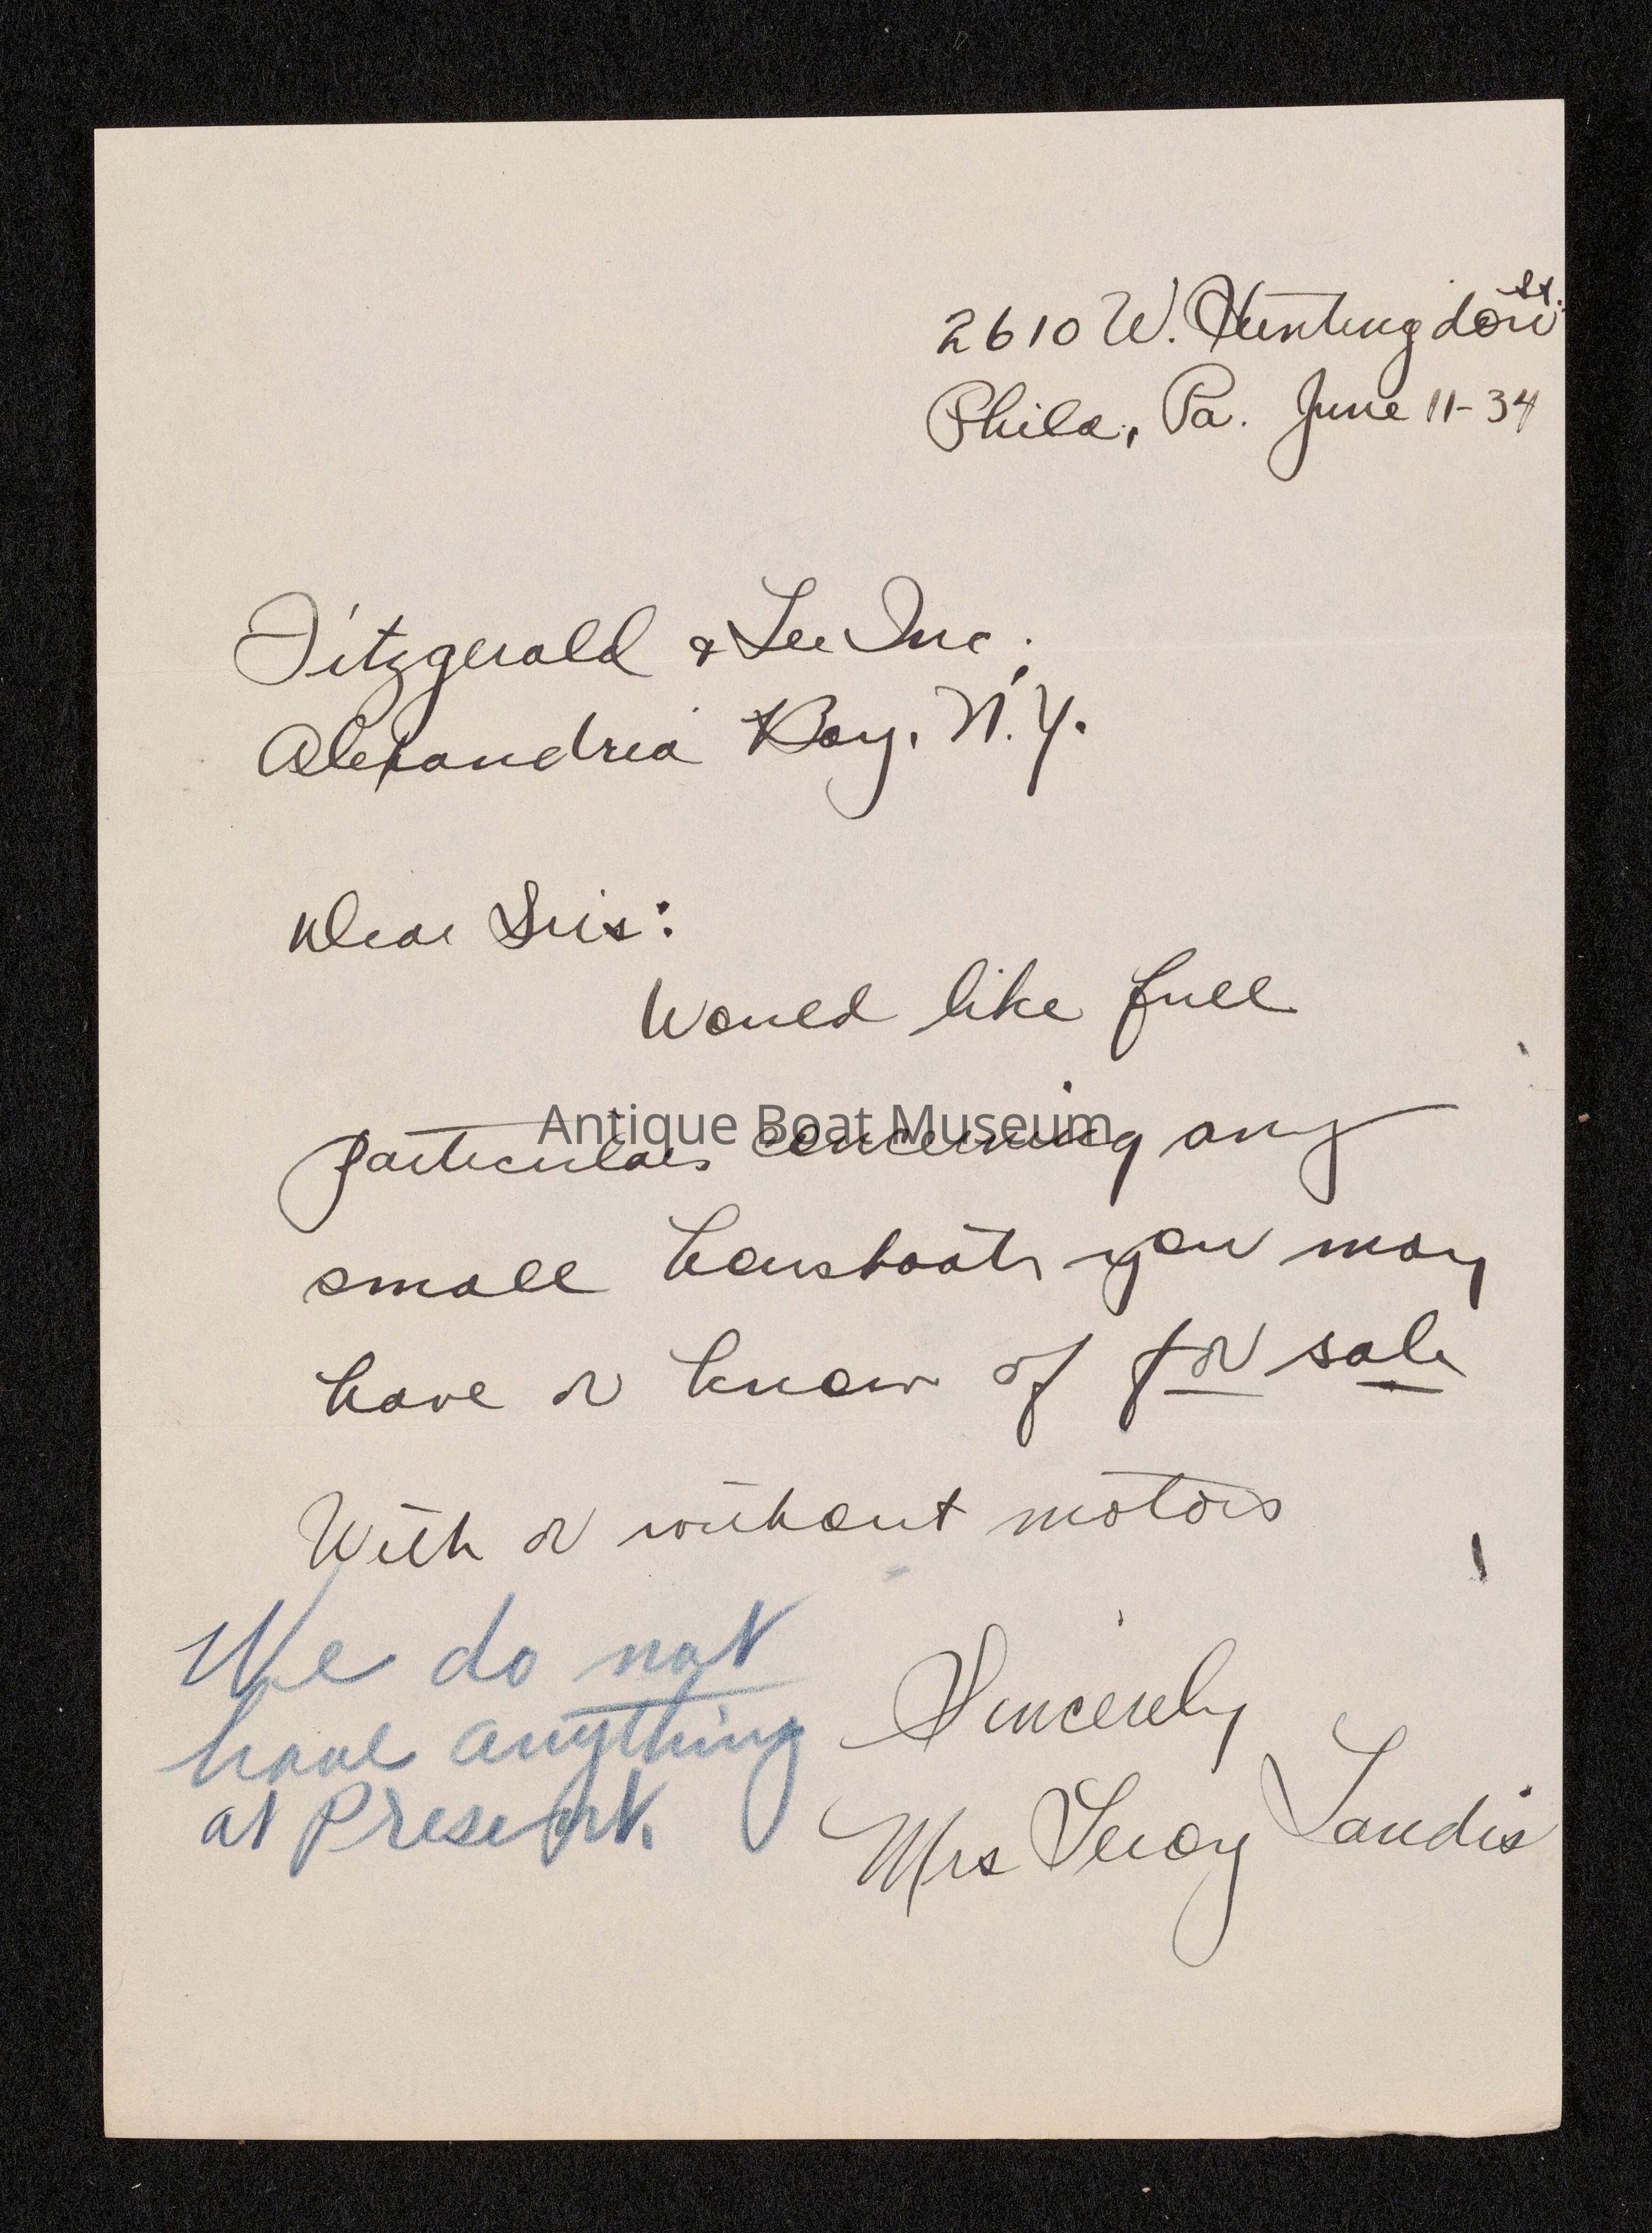 2610 W. Huntingdon St.
Phila., Pa. June 11-34
Fitzgerald & Lee Inc.,
Alexandria Bay, N.Y.
Dear Sirs:
Would like full
particulars concerning any
Antique Boat Museum
small housboats you may
have or know of for sale
With or without motors
We do not
have anything
at Present.
Sincerely
Mrs Leroy Landis